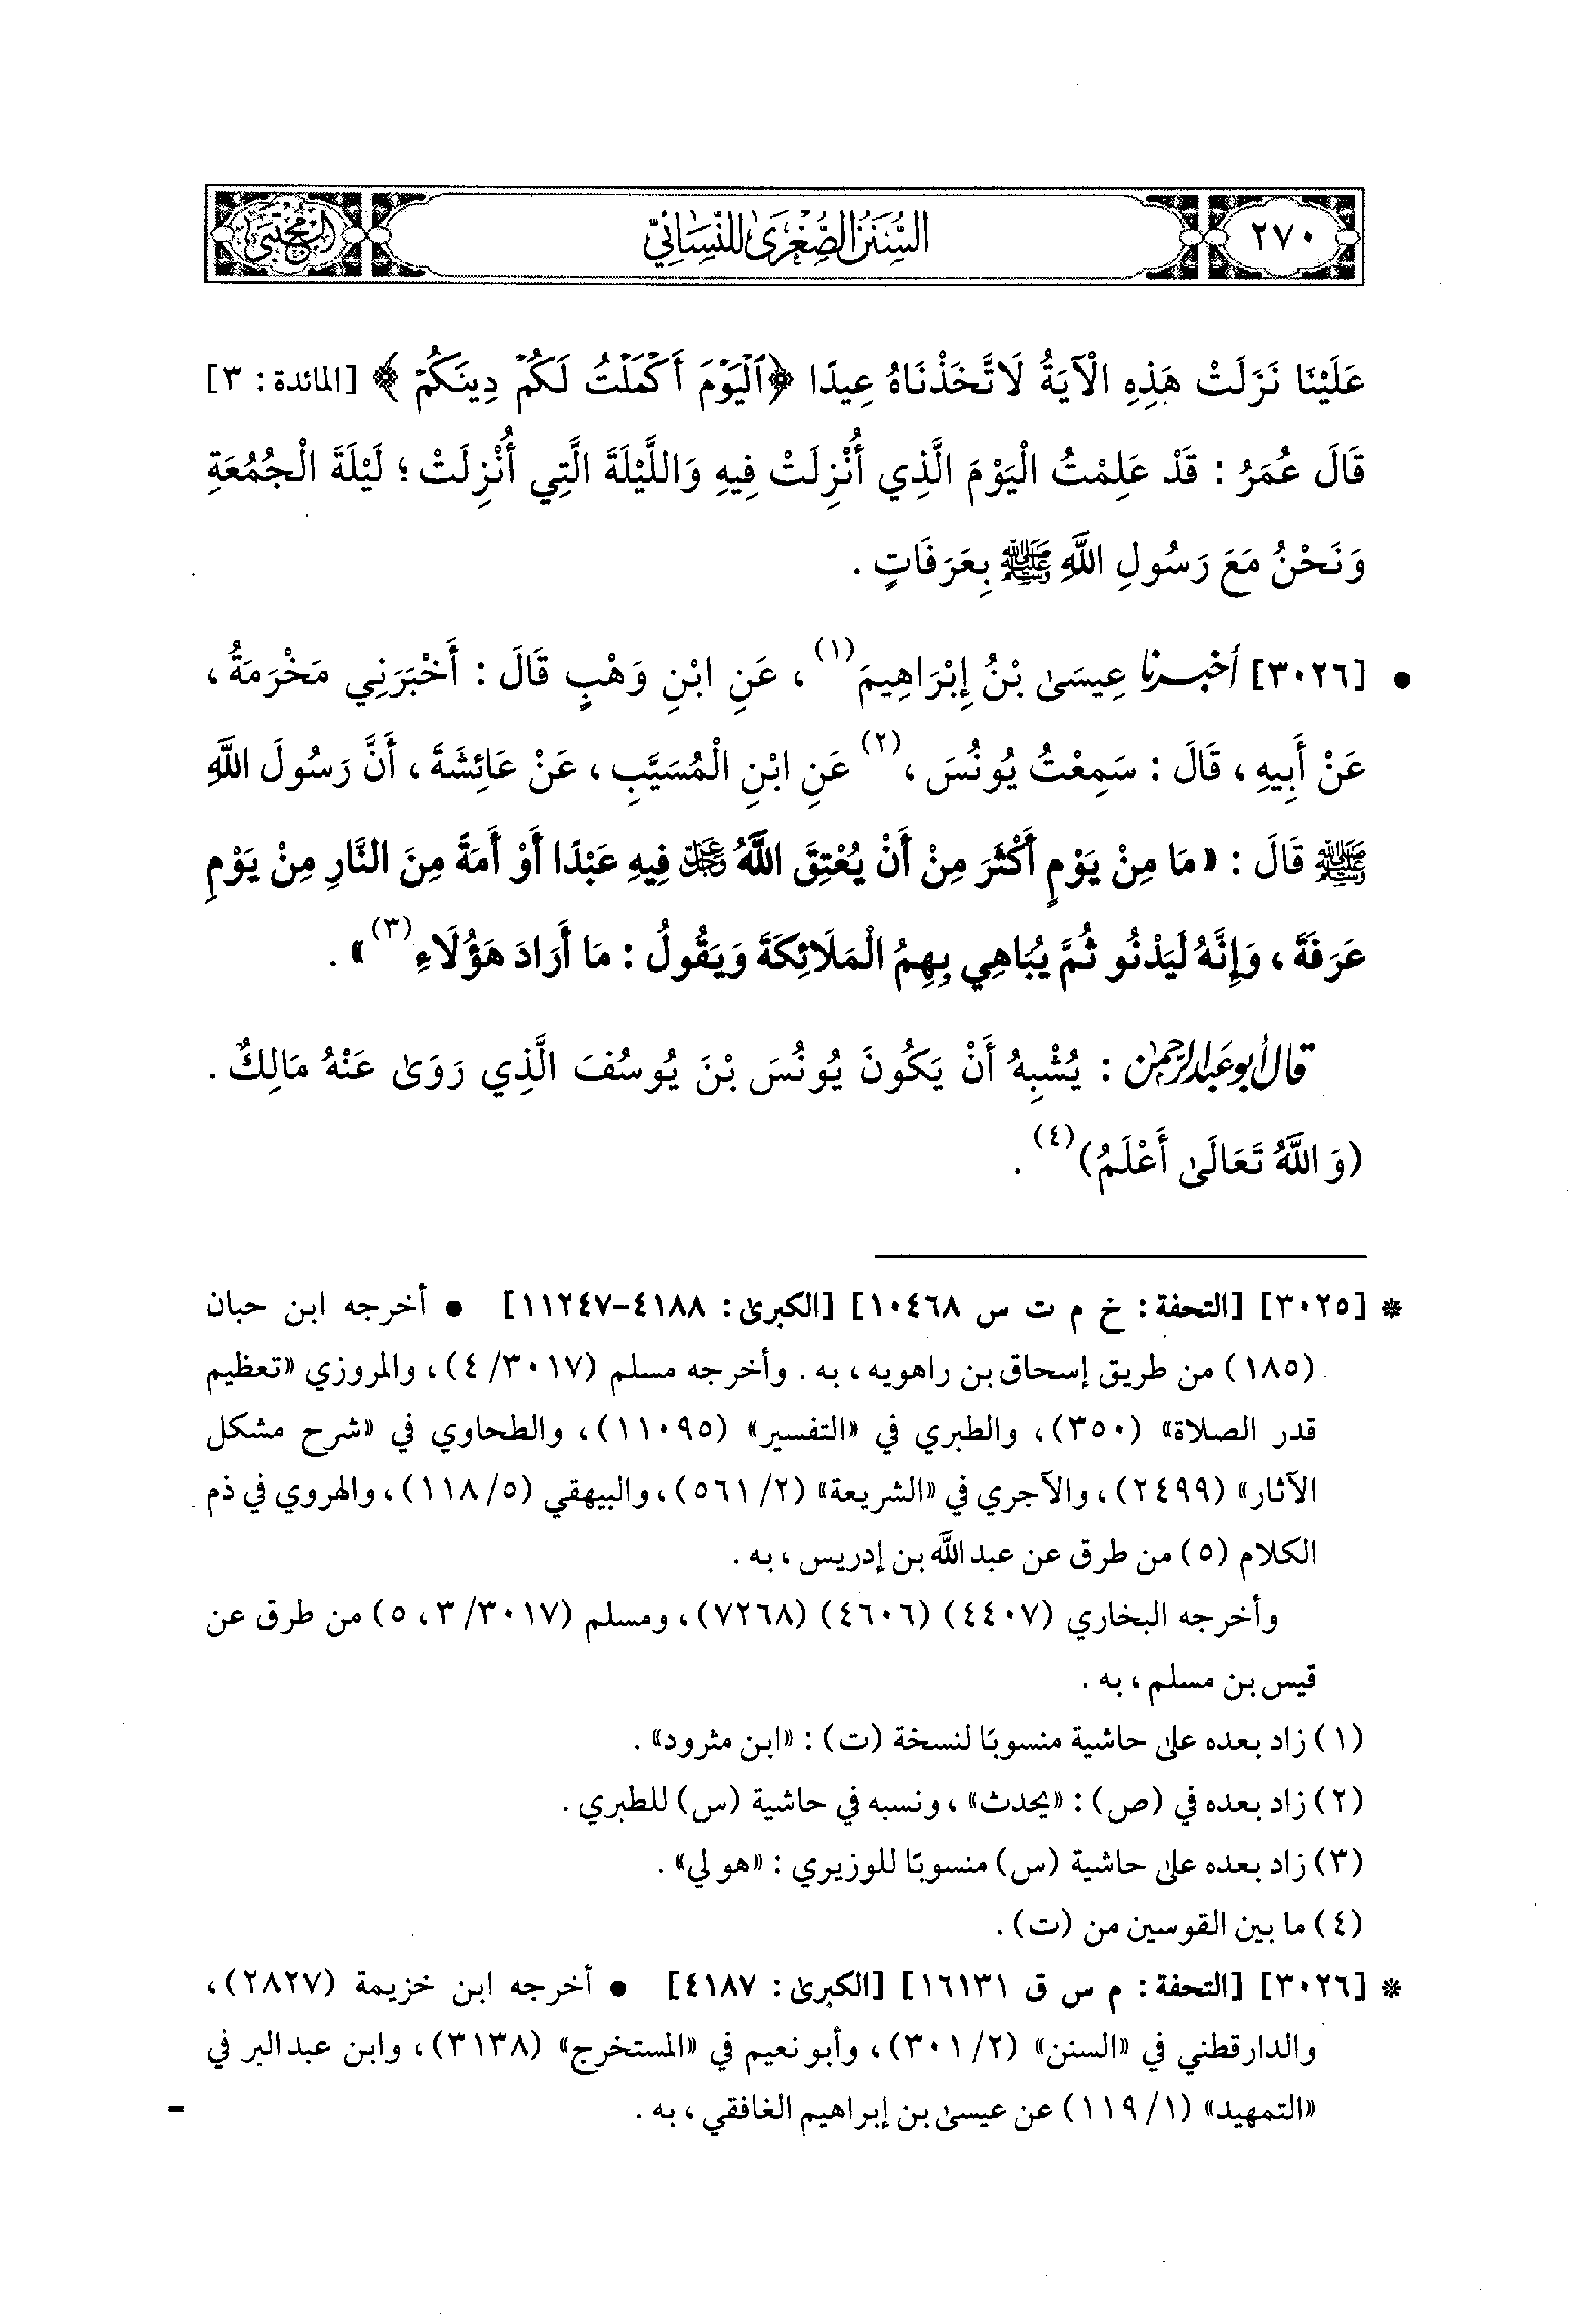 ٢٧٠
السُّنَنُ الصُّغْرَىٰ لِلنَّسَائِيِّ
المجتبى
عَلَيْنَا نَزَلَتْ هَذِهِ الْآيَةُ لَاتَّخَذْنَاهُ عِيدًا ﴿ٱلْيَوْمَ أَكْمَلْتُ لَكُمْ دِينَكُمْ﴾ [المائدة : ٣]
قَالَ عُمَرُ : قَدْ عَلِمْتُ الْيَوْمَ الَّذِي أُنْزِلَتْ فِيهِ وَاللَّيْلَةَ الَّتِي أُنْزِلَتْ ؛ لَيْلَةَ الْجُمُعَةِ
وَنَحْنُ مَعَ رَسُولِ اللَّهِ ﷺ بِعَرَفَاتٍ .
• [٣٠٢٦] أخبرنا عِيسَىٰ بْنُ إِبْرَاهِيمَ(١) ، عَنِ ابْنِ وَهْبٍ قَالَ : أَخْبَرَنِي مَخْرَمَةُ ،
عَنْ أَبِيهِ ، قَالَ : سَمِعْتُ يُونُسَ ،(٢) عَنِ ابْنِ الْمُسَيَّبِ ، عَنْ عَائِشَةَ ، أَنَّ رَسُولَ اللَّهِ
ﷺ قَالَ : «مَا مِنْ يَوْمٍ أَكْثَرَ مِنْ أَنْ يُعْتِقَ اللَّهُ عَزَّ وَجَلَّ فِيهِ عَبْدًا أَوْ أَمَةً مِنَ النَّارِ مِنْ يَوْمِ
عَرَفَةَ ، وَإِنَّهُ لَيَدْنُو ثُمَّ يُبَاهِي بِهِمُ الْمَلَائِكَةَ وَيَقُولُ : مَا أَرَادَ هَؤُلَاءِ(٣)» .
قال أبو عبد الرحمن : يُشْبِهُ أَنْ يَكُونَ يُونُسَ بْنَ يُوسُفَ الَّذِي رَوَىٰ عَنْهُ مَالِكٌ .
(وَاللَّهُ تَعَالَىٰ أَعْلَمُ)(٤) .
* [٣٠٢٥] [التحفة : خ م ت س ١٠٤٦٨] [الكبرىٰ : ٤١٨٨-١١٢٤٧] • أخرجه ابن حبان
(١٨٥) من طريق إسحاق بن راهويه ، به . وأخرجه مسلم (٣٠١٧/ ٤) ، والمروزي «تعظيم
قدر الصلاة» (٣٥٠) ، والطبري في «التفسير» (١١٠٩٥) ، والطحاوي في «شرح مشكل
الآثار» (٢٤٩٩) ، والآجري في «الشريعة» (٢/ ٥٦١) ، والبيهقي (٥/ ١١٨) ، والهروي في ذم
الكلام (٥) من طرق عن عبد اللَّه بن إدريس ، به .
وأخرجه البخاري (٤٤٠٧) (٤٦٠٦) (٧٢٦٨) ، ومسلم (٣٠١٧/ ٣ ، ٥) من طرق عن
قيس بن مسلم ، به .
(١) زاد بعده علىٰ حاشية منسوبًا لنسخة (ت) : «ابن مثرود» .
(٢) زاد بعده في (ص) : «يحدث» ، ونسبه في حاشية (س) للطبري .
(٣) زاد بعده علىٰ حاشية (س) منسوبًا للوزيري : «هو لي» .
(٤) ما بين القوسين من (ت) .
* [٣٠٢٦] [التحفة : م س ق ١٦١٣١] [الكبرىٰ : ٤١٨٧] • أخرجه ابن خزيمة (٢٨٢٧) ،
والدارقطني في «السنن» (٢/ ٣٠١) ، وأبو نعيم في «المستخرج» (٣١٣٨) ، وابن عبد البر في
«التمهيد» (١/ ١١٩) عن عيسىٰ بن إبراهيم الغافقي ، به . =